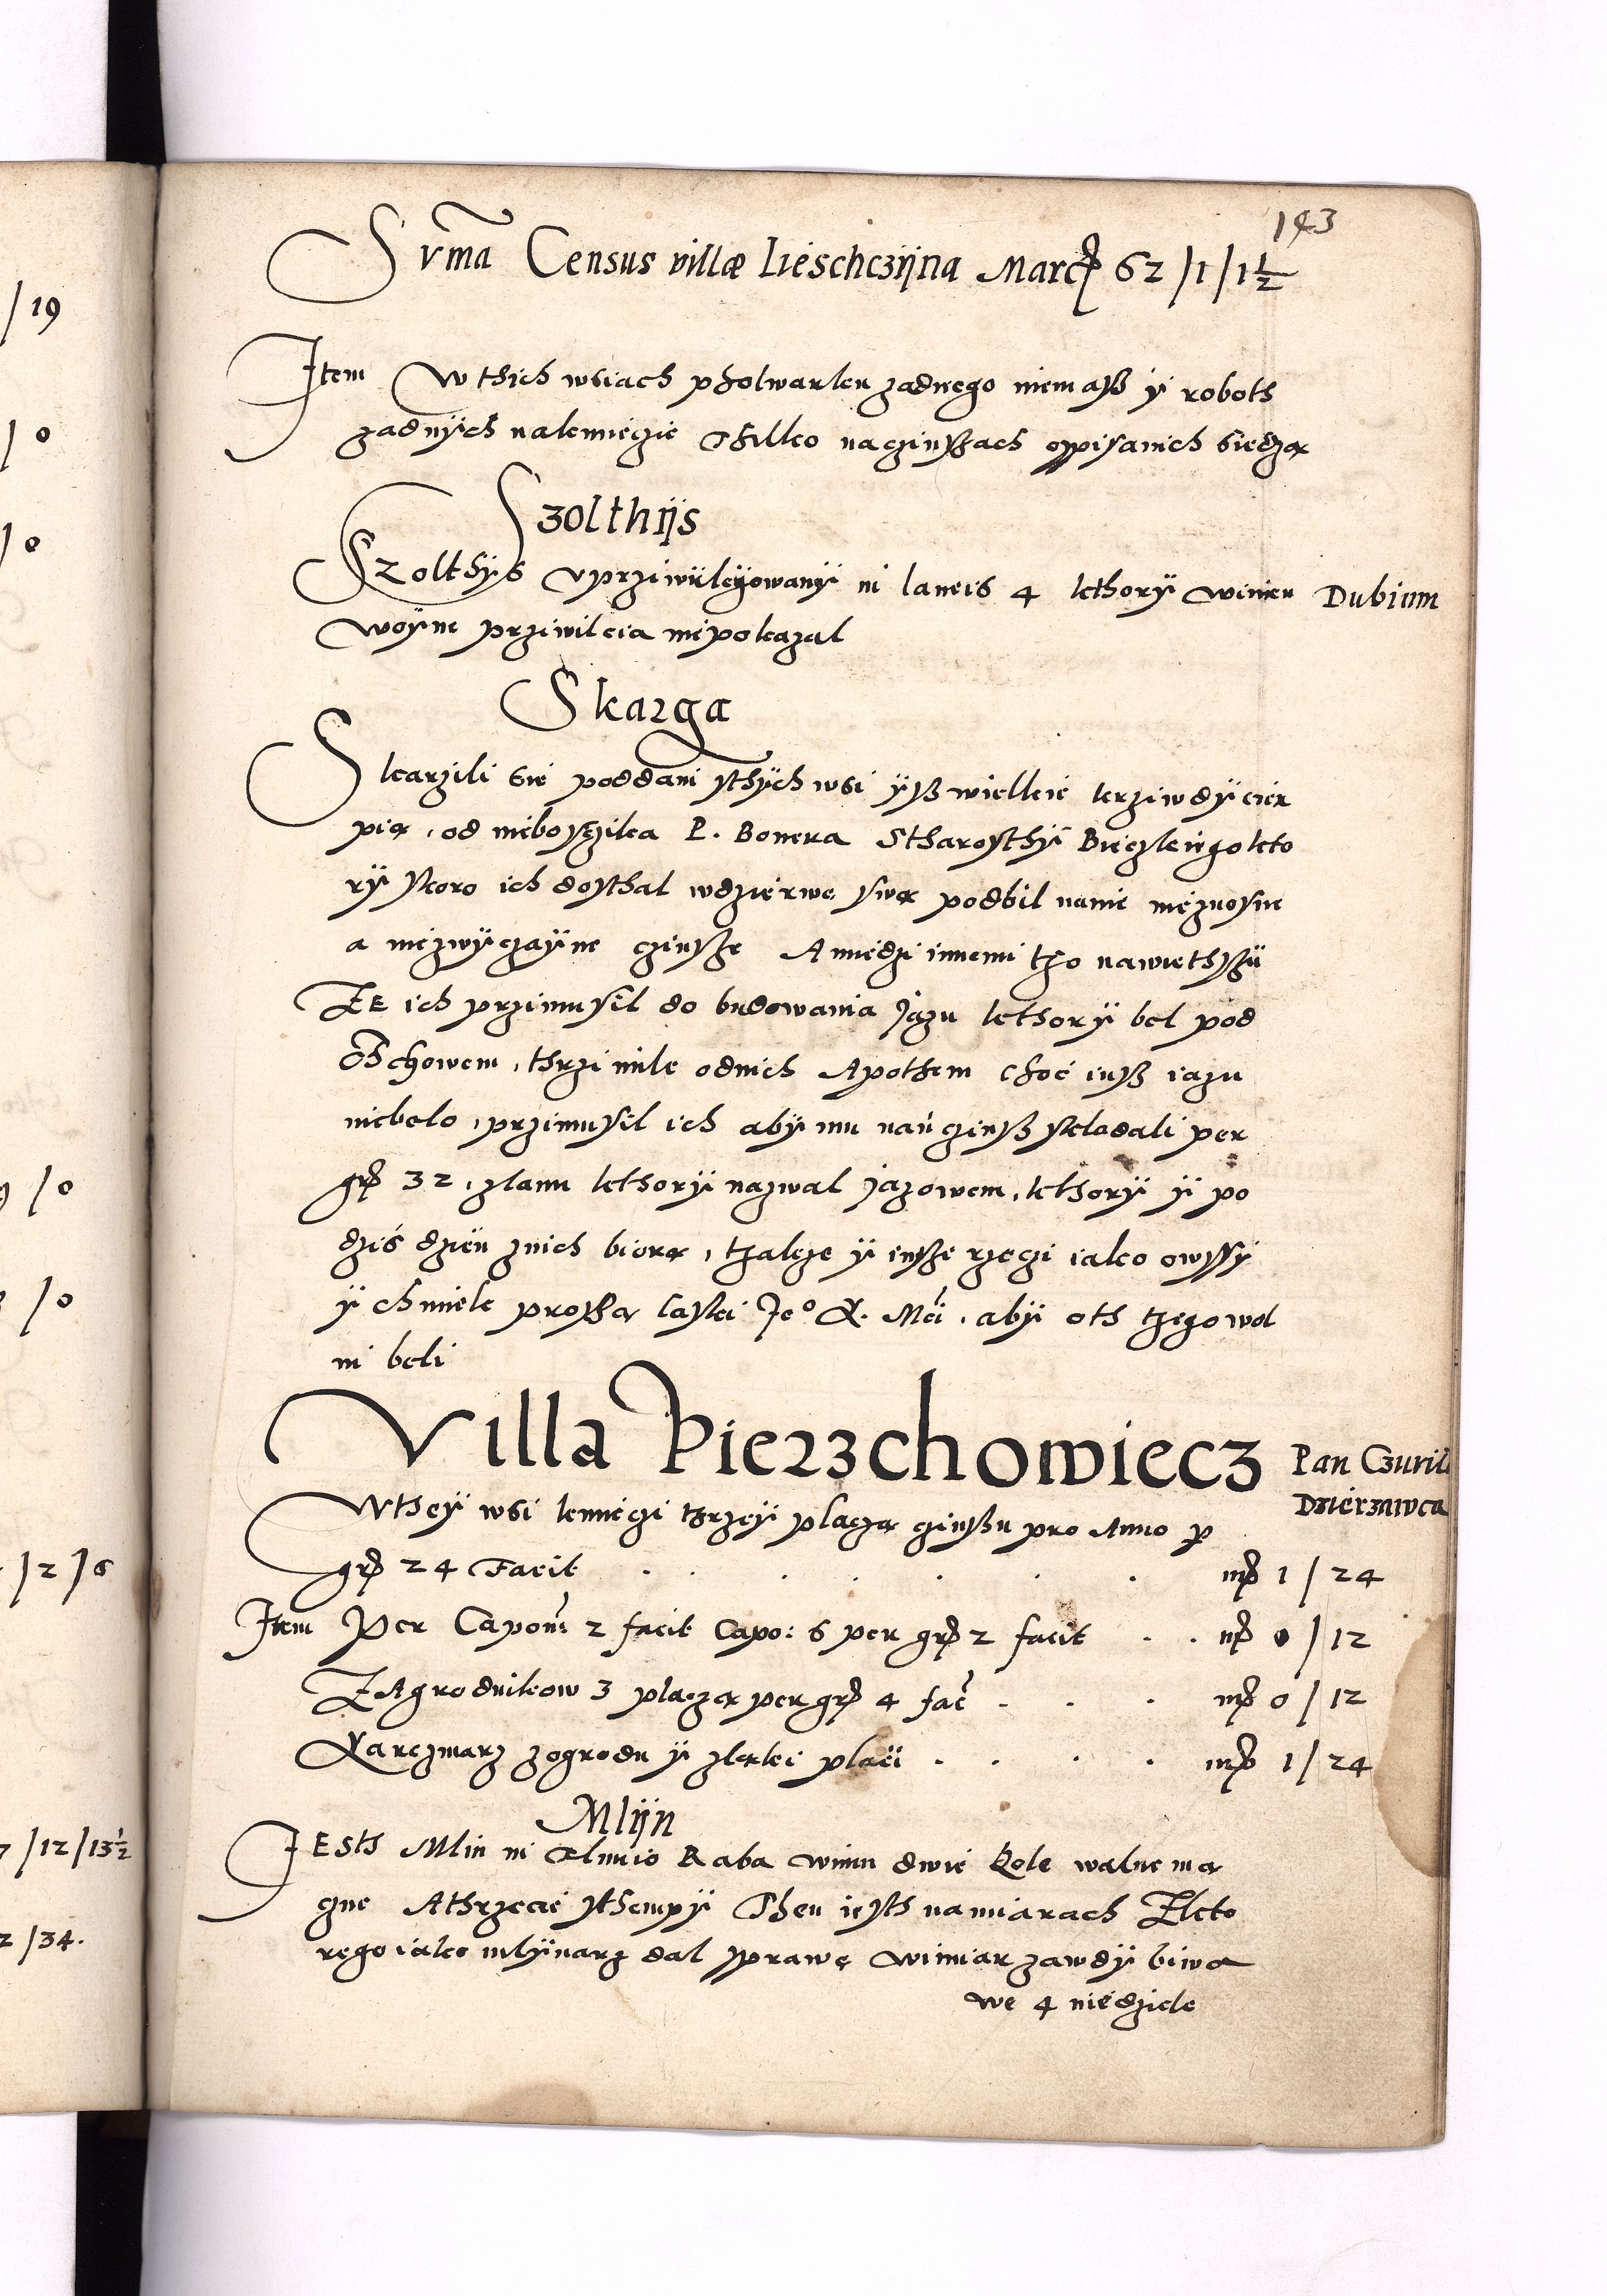 143
Svma Census villæ Lieschczÿna Marcę 62 / 1 / 1½
Item W thich wsiach pholwarku zadnego niemasß ÿ roboth
zadnÿch nakmieczie Thilko naczinßach oppisanich siedzą
Szolthÿs
Szolthÿs vprziwilÿowanÿ ni laneis 4 kthorÿ winien Dubium
woÿne prziwileia niepokazal
Skarga
Skarzili sie poddani ÿthÿch wsi ÿß wielkie krziwdÿ cier
pią, od niebosczika P. Bonera Stharosthÿ Bieczkiego kto
rÿ skoro ich dosthal wdzierwe swą podbil nanie nieznosne
a niezwÿczaÿne czinsße A miedzi innemi tzo nawiethsßÿ
ZE ich przimusil do budowania Jazu kthorÿ bel pod
Ochowem, thrzi mile odnich Apothem choć iuß iazu
niebelo, przimusil ich abÿ mu nań czinß skladali per
gr 32, zlanu kthorÿ nazwal Jazowem, kthorÿ ÿ po
dziś dzień znich biorą, tzakze ÿ insße rzeczi iako owssÿ
ÿ chmiele prosßą laski Jeº K. Mci, abÿ oth tzego wol
ni beli
Villa Pierzchowiecz Pan Czuril
Dzierzawca
Wtheÿ wsi kmieczi thrzeÿ placzą czinsßu pro Anno p
gr 24 Facit . . . . . . . mr 1 / 24
Item Per Capon: 2 facit Capo: 6 per gr 2 facit . . mr 0 / 12
ZAgrodnikow 3 placzą per gr 4 fac . . . mr 0 / 12
Karczmarz zogrodu ÿ zlerki placi . . . . mr 1 / 24
Mlÿn
JEsth Mlin ni Raba winin dwie Kole walne ma
gne Athrzecie sthempÿ Then iesth namiarach Zkto
rego iako mlÿnarz dal sprawę wimiar zawdÿ biwa
we 4 niedziele
/ 19
/ 0
/ 0
/ 0
/ 0
/ 2 / 6
/ 12 / 13½
2 / 34.